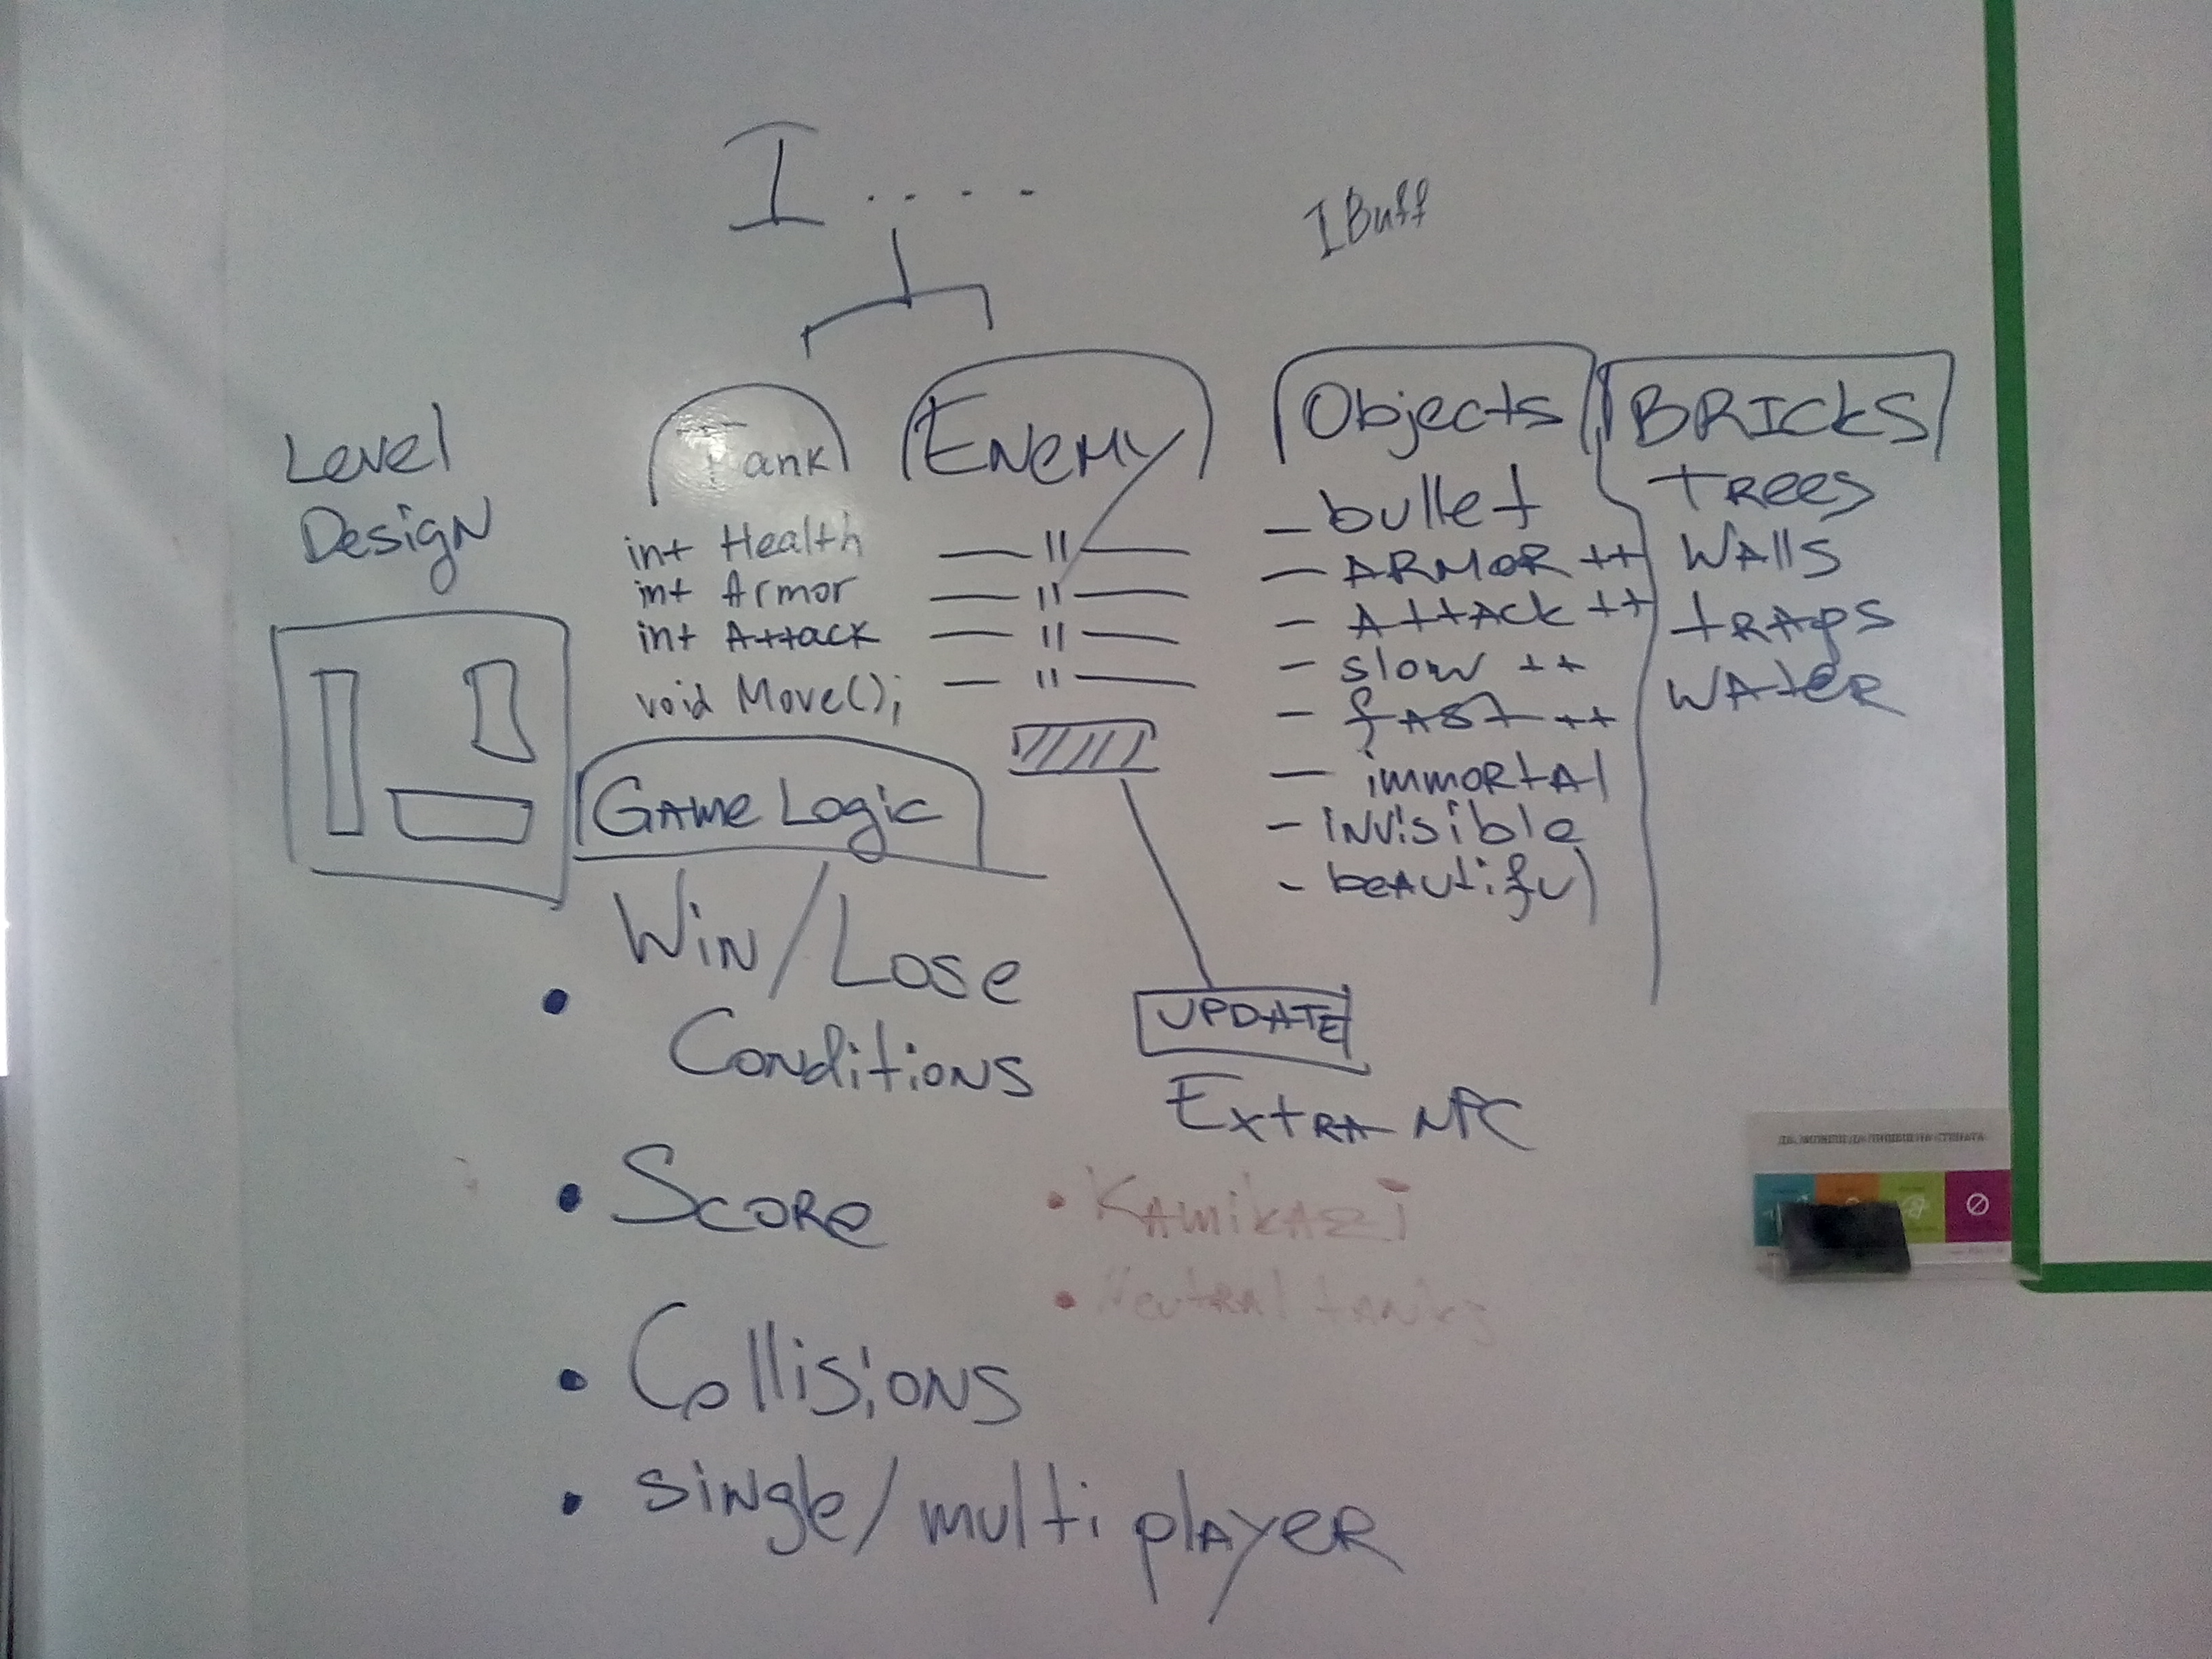 I . . . .
IBuff
Level
Design
Tank
int Health
int Armor
int Attack
void Move();
Enemy
— 11 —
— 11 —
— 11 —
— 11 —
Objects
- bullet
- ARMOR ++
- Attack ++
- slow ++
- fast ++
- immortal
- invisible
- beautiful
BRICKS
TREES
WALLS
traps
WATER
Game Logic
• Win/Lose
Conditions
• Score
• Collisions
• single/multi player
UPDATE
Extra NPC
• Kamikazi
• Neutral
ДА, МОЖЕШ ДА ПИШЕШ НА СТЕНАТА